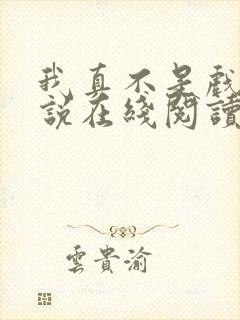 我真不是戲
說在綫閱讀
雲貴渝